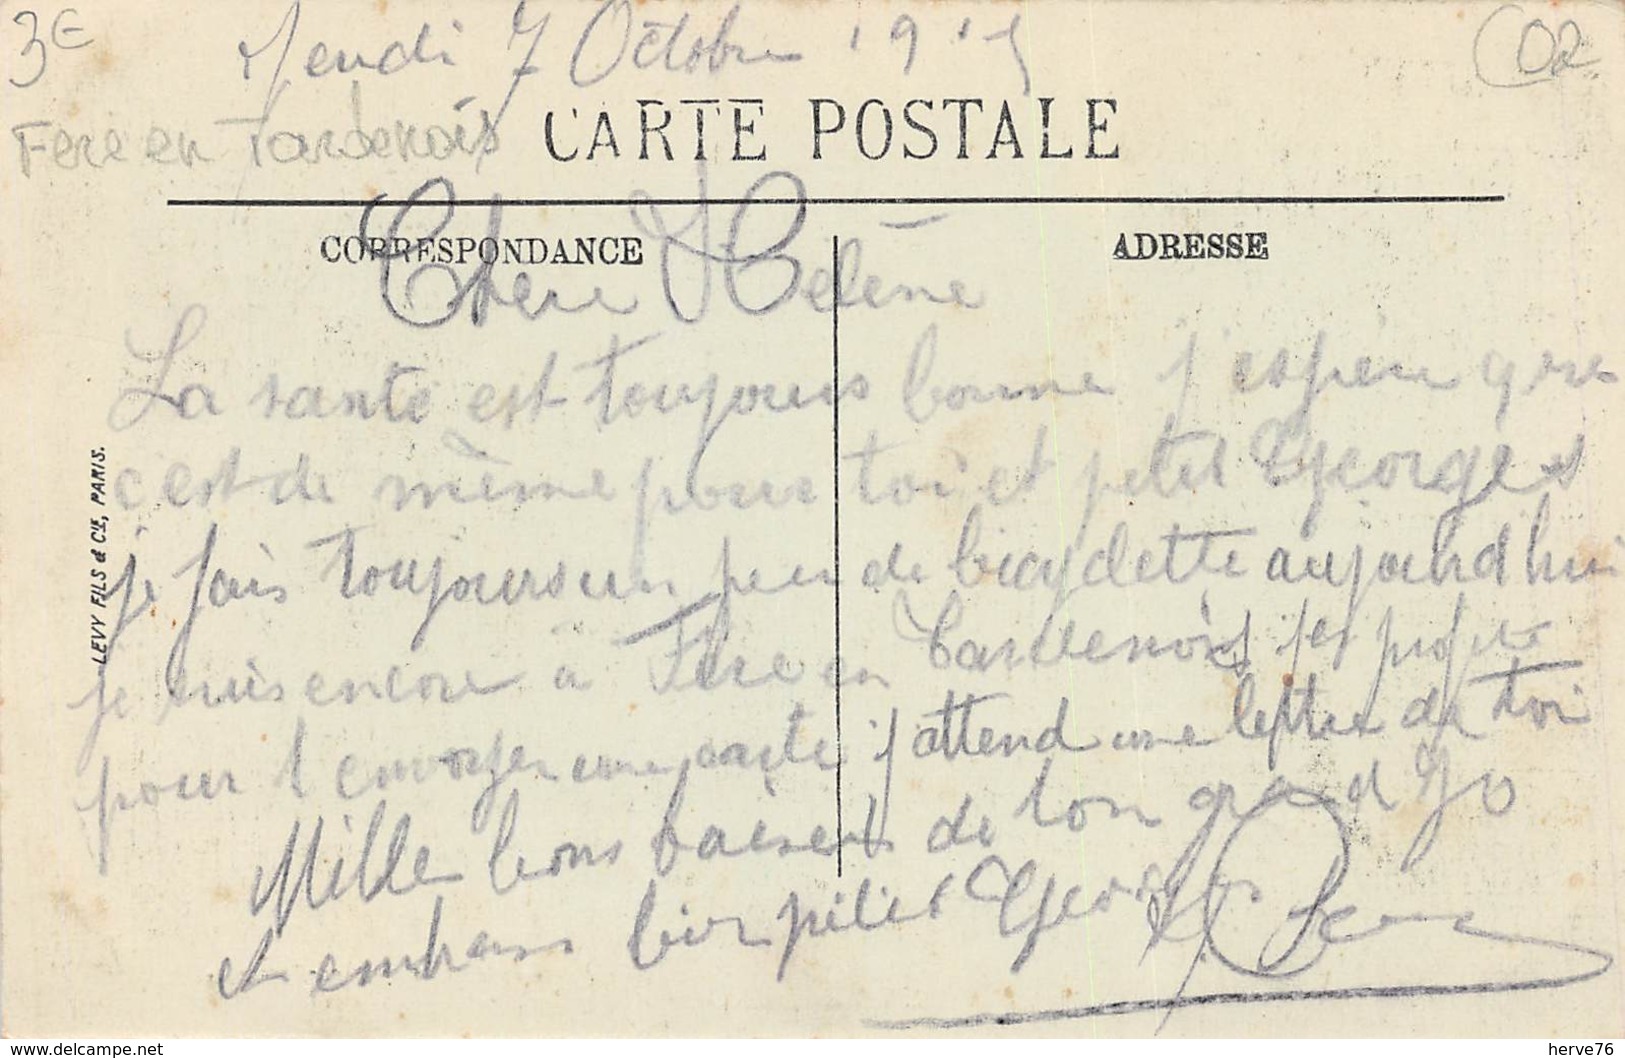 3€
Jeudi 7 Octobre 1915
02
Fere en Tardenois
CARTE POSTALE
CORRESPONDANCE
ADRESSE
Chere Hélène
La santé est toujours bonne j'espère que
c'est de même pour toi et petit Georges
je fais toujours un peu de bicyclette aujourd hui
je suis encore à Fere en Tardenois j'en profite
pour t envoyer une carte j'attend une lettre de toi
Mille bons baisers de ton grand
et embrasse bien petit Georges
LEVY FILS & Cie, PARIS.
delcampe.net
herve76